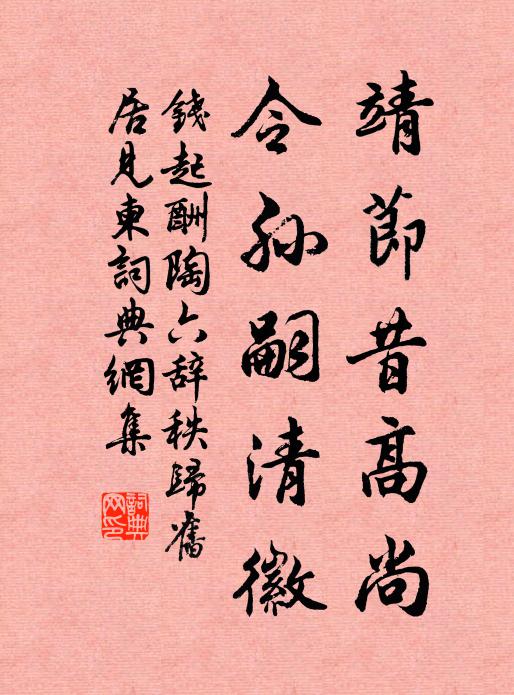 靖節昔高尚
令孙嗣清徽
錢起酬陶六辞秩歸舊
居見東詞典網集
詞典
网印